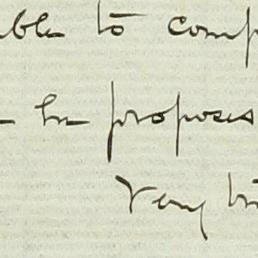 able to comp
he proposes
Very tr